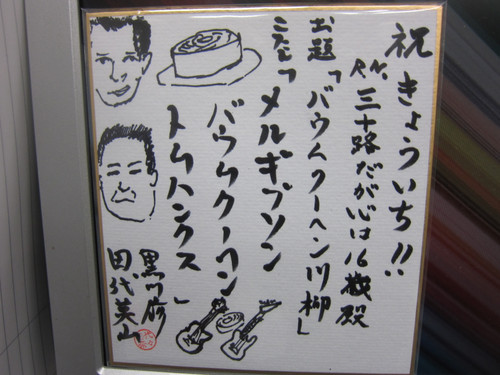 祝きょういち!!
R.N. 三十路だが心は16歳殿
お題「バウムクーヘン川柳」
こたえ「メルギブソン
バウムクーヘン
トムハンクス」
黒川修
田代英山